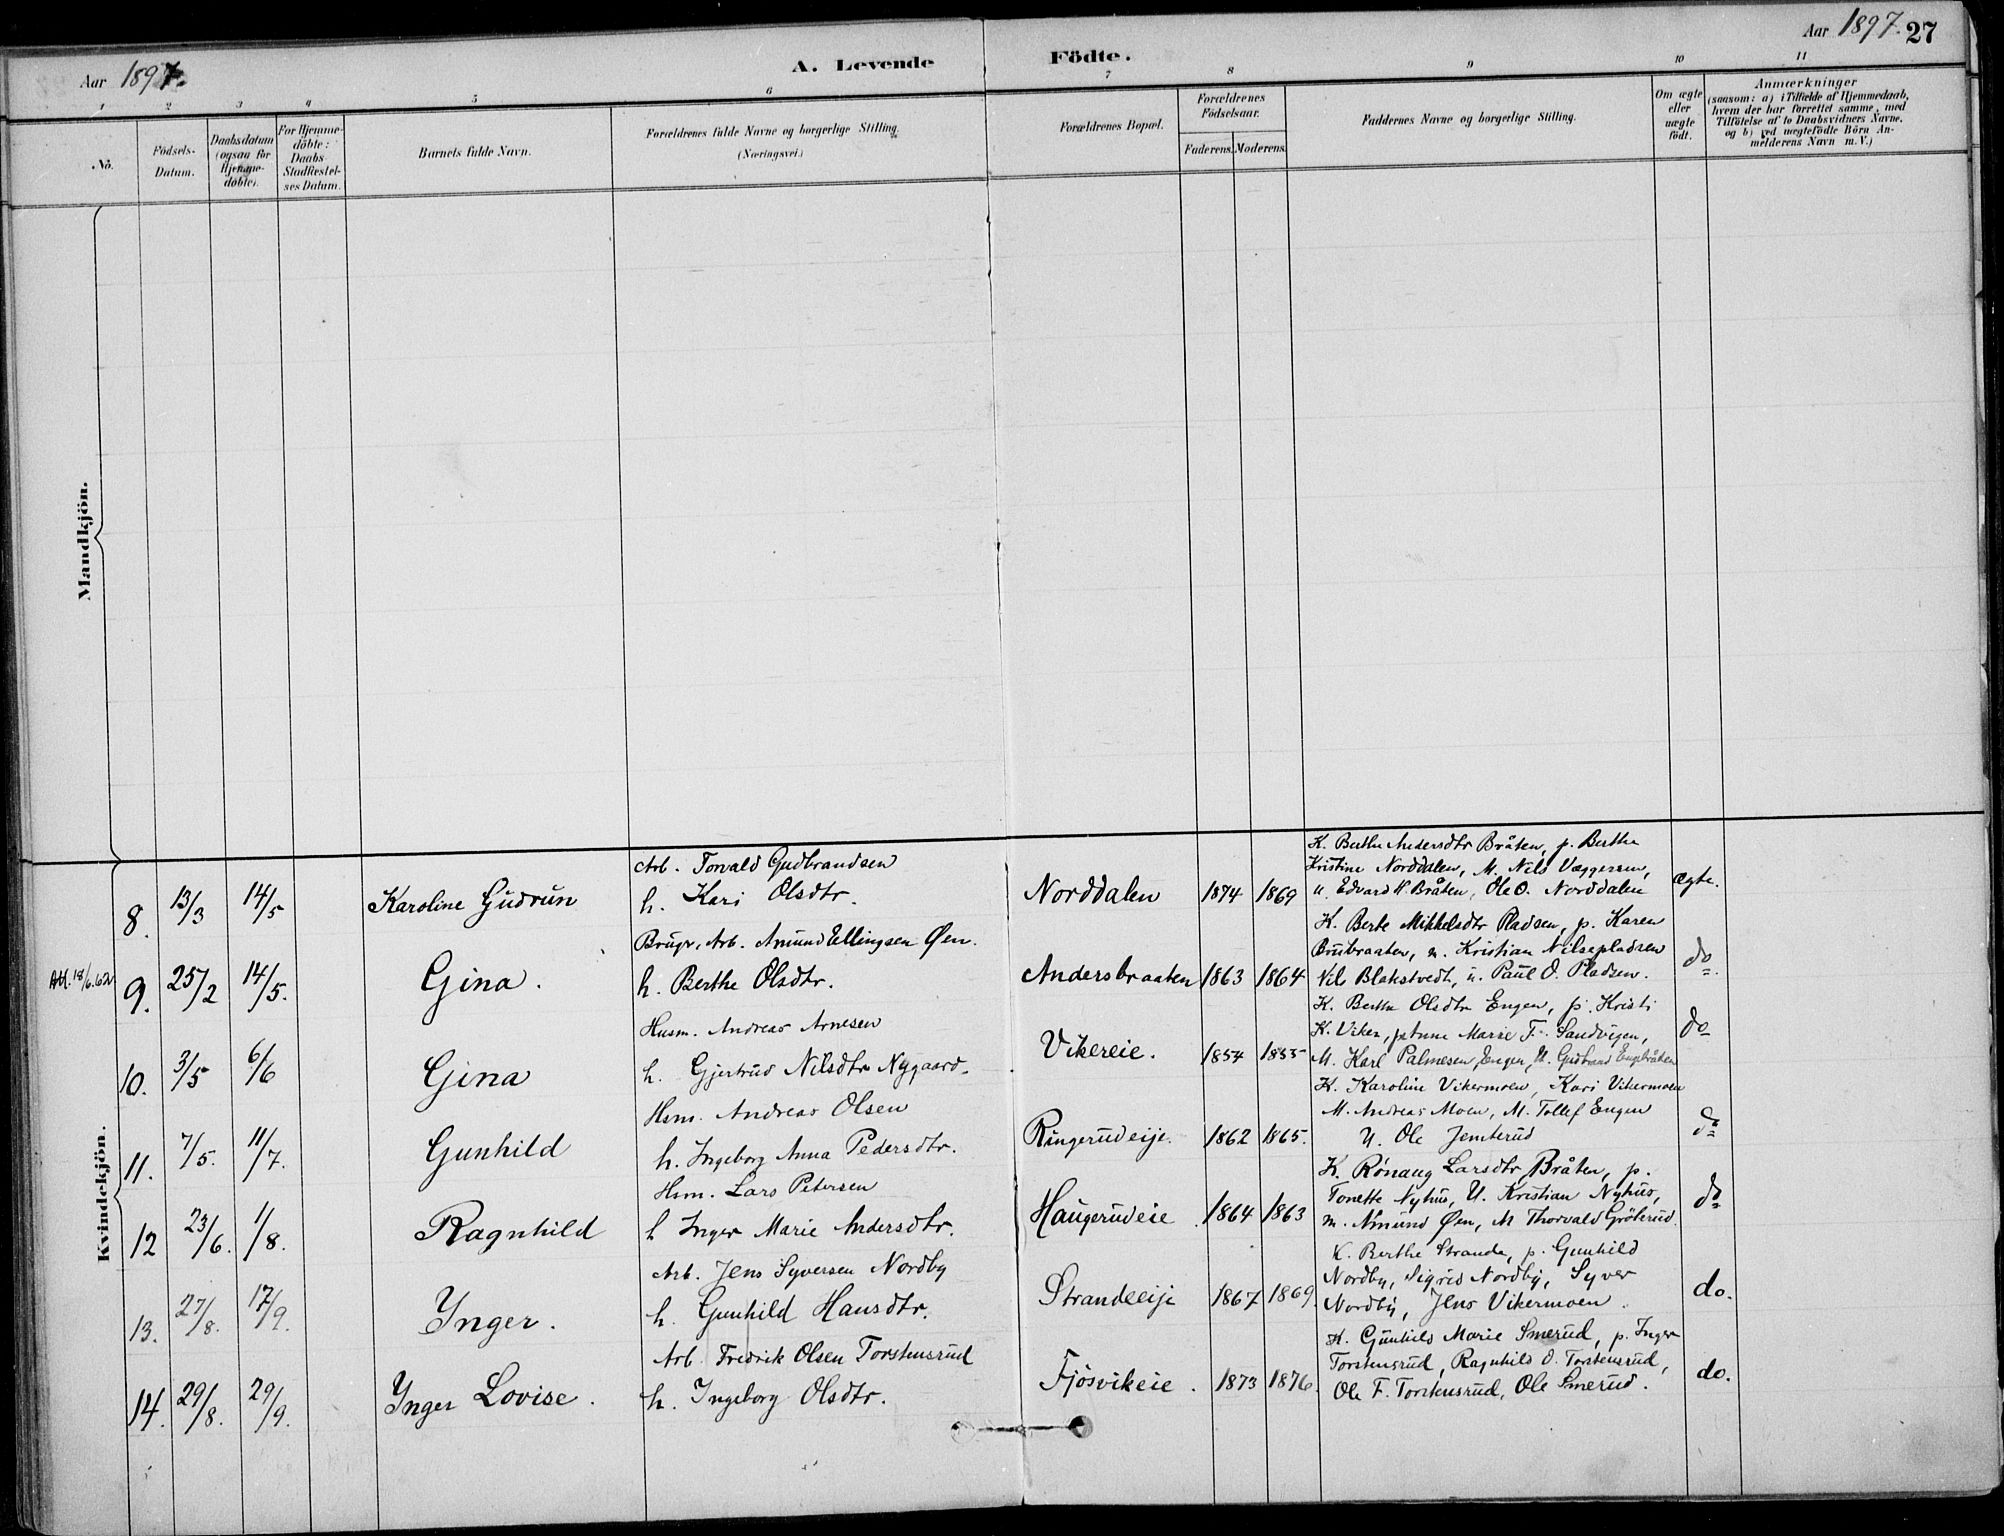 Aar 1897.
A. Levende Födte.
Aar 1897. 27
1 2 3 4 5 6 7 8 9 10 11
No.
Födsels-
Datum.
Daabsdatum
(ogsaa for
Hjemme-
döbte).
For Hjemme-
döbte:
Daabs-
Stadfæstel-
ses Datum.
Barnets fulde Navn.
Forældrenes fulde Navne og borgerlige Stilling.
(Næringsvei.)
Forældrenes Bopæl.
Forældrenes
Födselsaar.
Faderens. Moderens.
Faddernes Navne og borgerlige Stilling.
Om ægte
eller
uægte
født.
Anmærkninger
(saasom: a) i Tilfælde af Hjemmedaab,
hvem der har forrettet samme, med
Tilföielse af to Daabsvidners Navne,
og b) ved uægtefödte Börn An-
melderens Navn m.V.)
Mandkjön.
Kvindekjön.
8. 13/3 14/5 Karoline Gudrun
Arb. Torvald Gudbrandsen
h. Kari Olsdtr.
Norddalen 1874 1869
K. Berthe Andersdtr Bråten, p. Berthe
Kristine Norddalen, M. Nils Væggersen,
u. Edvard H. Bråten, Ole O. Norddalen
ægte.
Att. 18/6.62
9. 25/2 14/5. Gina.
Brugr, Arb. Amund Ellingsen Øen.
h. Berthe Olsdtr.
Andersbraaten 1863 1864
K. Berte Mikkelsdtr Pladsen, p. Karen
Brubraaten, u. Kristian Nilsepladsen
Nil Blakstvedt, u. Paul O. Pladsen.
do.
10. 3/5 6/6 Gina
Husm. Andreas Arnesen
h. Gjertrud Nilsdtr Nygaard.
Vikereie. 1854 1855
K. Berthe Olsdtr Engen, p. Kristi
K. Viken, p. Anne Marie F. Sandvigen,
M. Karl Palmesen Engen, U. Gudbrand Engebråten
do
11. 7/5. 11/7. Gunhild
Hsm. Andreas Olsen
h. Ingeborg Anna Pedersdtr.
Ringerudeije. 1862 1865.
K. Karoline Vikermoen, Kari Vikermoen
M. Andreas Moen, M. Tollef Engen
U. Ole Jemterud
do
12 23/6. 1/8. Ragnhild
Hsm. Lars Petersen
h Inger Marie Andersdtr.
Haugerudeie. 1864 1863
K. Rönaug Larsdtr Bråten, p.
Tonette Nyhus, U. Kristian Nyhus,
m. Amund Øen, M Thorvald Gröterud.
do
13. 27/8. 17/9. Ynger.
Arb. Jens Syversen Nordby
h. Gunhild Hansdtr.
Strandeeije 1867 1869.
K. Berthe Strande, p. Gunhild
Nordby, Sigrid Nordby, Syver
Nordby, Jens Vikermoen.
do.
14. 29/8. 29/9. Ynger Lovise.
Arb. Fredrik Olsen Torstensrud
h. Ingeborg Olsdtr.
Fjösvikeie. 1873 1876.
K. Gunhild Marie Smerud, p. Inger
Torstensrud, Ragnhild O. Torstensrud,
Ole F. Torstensrud, Ole Smerud.
do.